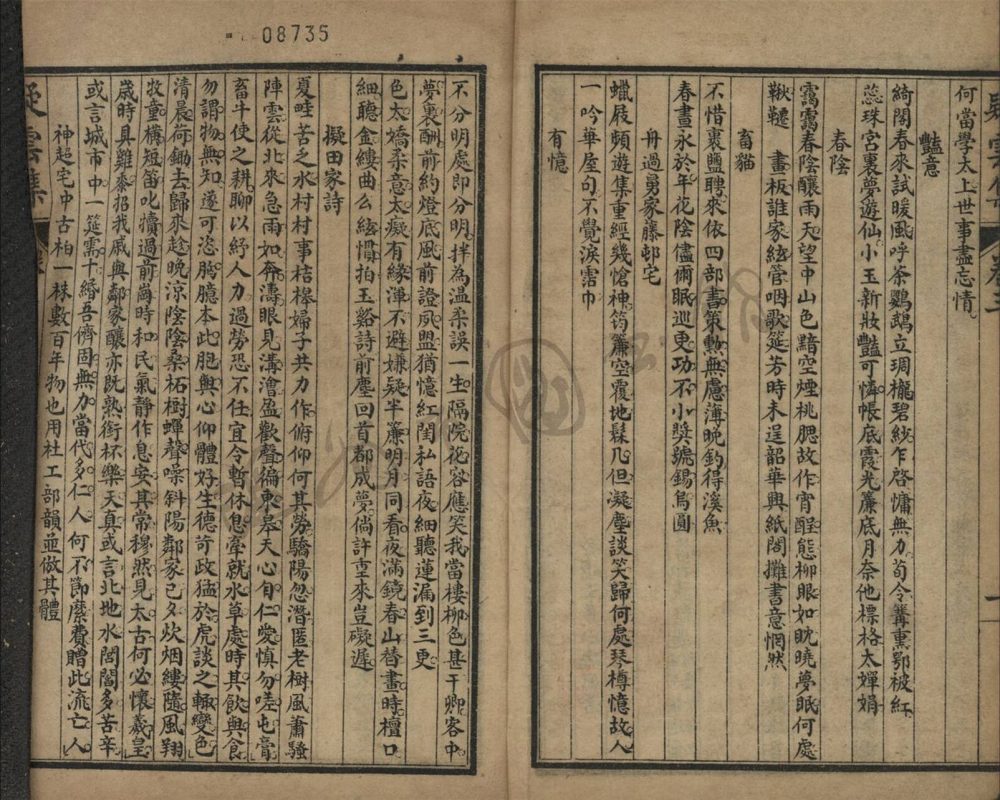 08735
疑雲集
卷三
何當學太上世事盡忘情
豔意
綺閣春來試暖風呼茶鸚鵡立琱櫳碧紗乍啓慵無力荀令篝熏鄂被紅
蕊珠宮裏夢遊仙小玉新妝豔可憐帳底霞光簾底月奈他標格太嬋娟
春陰
靄靄春陰釀雨天望中山色黯空煙桃腮故作宵酲態柳眼如眈曉夢眠何處
鞦韆 畫板誰家絃管咽歌筵芳時未逞韶華興紙閣攤書意惘然
畜猫
不惜裹鹽聘來依四部書策勳無慮薄晚釣得溪魚
春晝永於年花陰儘爾眠巡更功不小獎號錫烏圓
舟過舅家藤邨宅
蠟屐頻遊集重經幾愴神筠簾空覆地髹几但凝塵談笑歸何處琴樽憶故人
一吟華屋句不覺淚霑巾
有憶
不分明處即分明拌為溫柔誤一生隔院花容應笑我當樓柳色甚干卿客中
夢裏酬前約燈底風前證夙盟猶憶紅閨私語夜細聽蓮漏到三更
色太嬌柔意太癡有緣渾不避嫌疑半簾明月同看夜滿鏡春山替畫時檀口
細聽金縷曲么絃慣拍玉谿詩前塵回首都成夢倘許重來豈礙遲
擬田家詩
夏畦苦之水村村事桔槔婦子共力作俯仰何其勞驕陽忽潛匿老樹風蕭騷
陣雲從北來急雨如奔濤眼見溝澮盈歡聲徧東皋天心自仁愛慎勿嗟屯膏
畜牛使之耕聊以紓人力過勞恐不任宜令暫休息牽就水草處時其飲與食
勿謂物無知遂可恣胸臆本此胞與心仰體好生德苛政猛於虎談之輒變色
清晨荷鋤去歸來趁晚涼陰陰桑柘樹蟬聲噪斜陽鄰家已夕炊烟縷隨風翔
牧童橫短笛叱犢過前崗時和民氣靜作息安其常穆然見太古何必懷羲皇
歲時具雞黍招我戚與鄰家釀亦既熟銜杯樂天真或言北地水閭閻多苦辛
或言城市中一筵需十緡吾儕固無力當代多仁人何不節縻費贈此流亡人
神超宅中古柏一株數百年物也用杜工部韻並倣其體
疑雲集